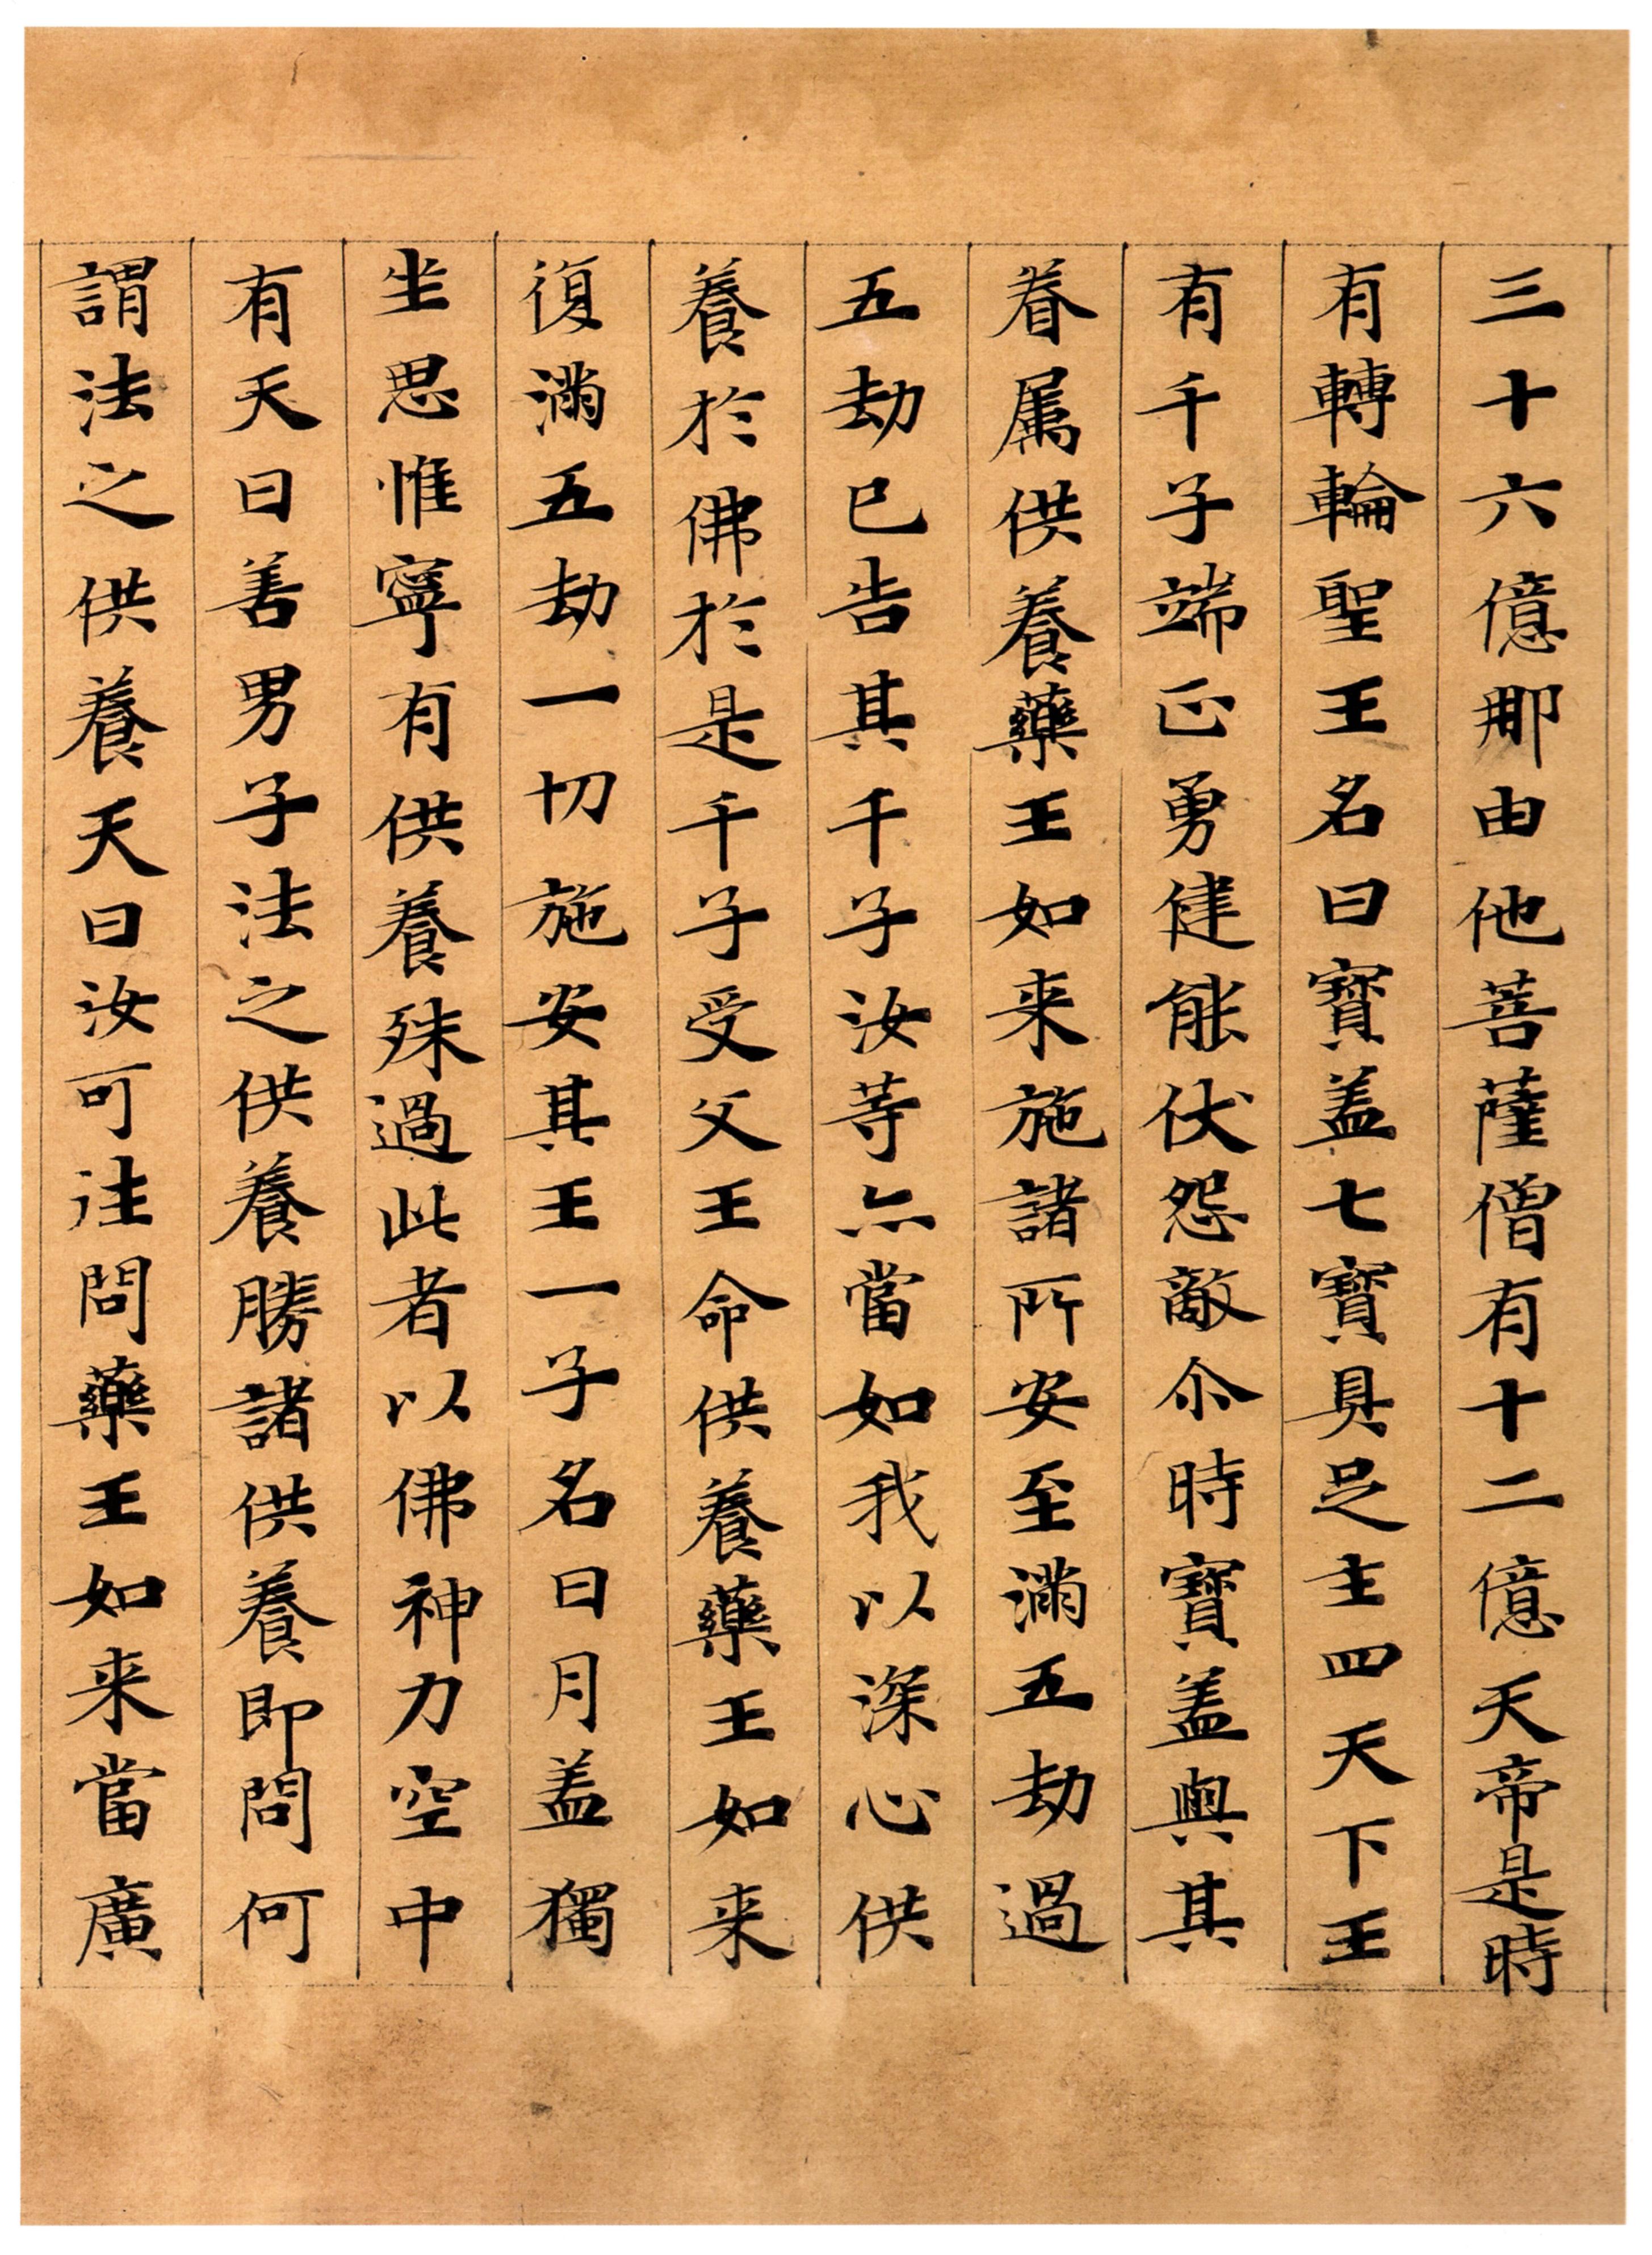 三十六億那由他菩薩僧有十二億天帝是時
有轉輪聖王名曰寶盖七寶具足主四天下王
有千子端正勇健能伏怨敵尒時寶盖與其
眷属供養藥王如来施諸所安至滿五劫過
五劫已告其千子汝等亦當如我以深心供
養於佛於是千子受父王命供養藥王如来
復滿五劫一切施安其王一子名曰月盖獨
坐思惟寧有供養殊過此者以佛神力空中
有天曰善男子法之供養勝諸供養即問何
謂法之供養天曰汝可往問藥王如来當廣